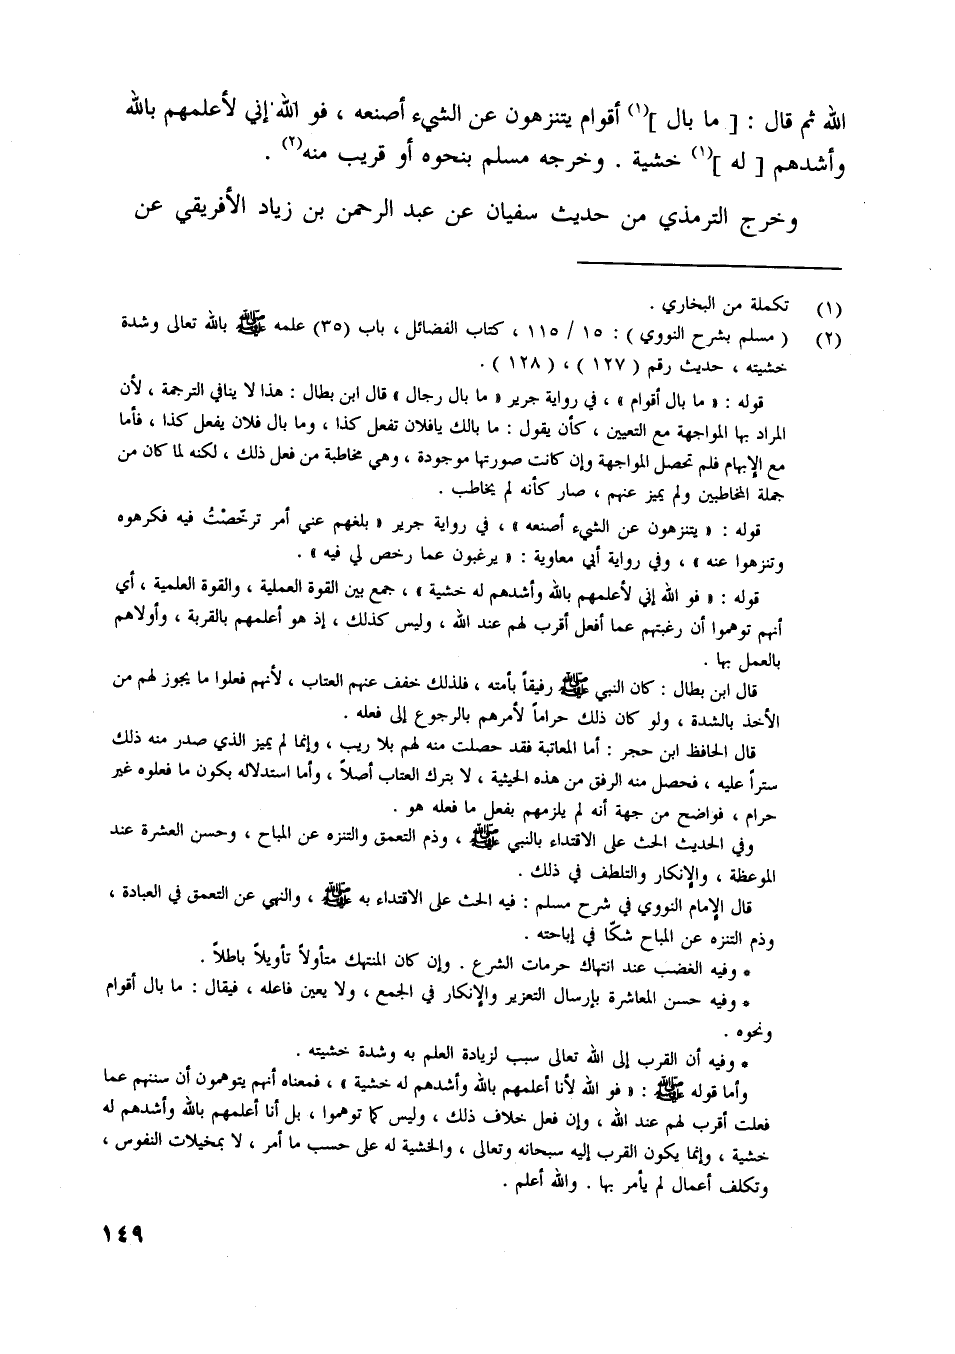 الله ثم قال : [ ما بال ](١) أقوام يتنزهون عن الشيء أصنعه ، فو الله إني لأعلمهم بالله
وأشدهم [ له ](١) خشية . وخرجه مسلم بنحوه أو قريب منه(٢) .
وخرج الترمذي من حديث سفيان عن عبد الرحمن بن زياد الأفريقي عن
(١) تكملة من البخاري .
(٢) ( مسلم بشرح النووي ) : ١٥ / ١١٥ ، كتاب الفضائل ، باب (٣٥) علمه ﷺ بالله تعالى وشدة
خشيته ، حديث رقم ( ١٢٧ ) ، ( ١٢٨ ) .
قوله : « ما بال أقوام » ، في رواية جرير « ما بال رجال » قال ابن بطال : هذا لا ينافي الترجمة ، لأن
المراد بها المواجهة مع التعيين ، كأن يقول : ما بالك يافلان تفعل كذا ، وما بال فلان يفعل كذا ، فأما
مع الإبهام فلم تحصل المواجهة وإن كانت صورتها موجودة ، وهي مخاطبة من فعل ذلك ، لكنه لما كان من
جملة المخاطبين ولم يميز عنهم ، صار كأنه لم يخاطب .
قوله : « يتنزهون عن الشيء أصنعه » ، في رواية جرير « بلغهم عني أمر ترخّصْتُ فيه فكرهوه
وتنزهوا عنه » ، وفي رواية أبي معاوية : « يرغبون عما رخص لي فيه » .
قوله : « فو الله إني لأعلمهم بالله وأشدهم له خشية » ، جمع بين القوة العملية ، والقوة العلمية ، أي
أنهم توهموا أن رغبتهم عما أفعل أقرب لهم عند الله ، وليس كذلك ، إذ هو أعلمهم بالقربة ، وأولاهم
بالعمل بها .
قال ابن بطال : كان النبي ﷺ رفيقاً بأمته ، فلذلك خفف عنهم العتاب ، لأنهم فعلوا ما يجوز لهم من
الأخذ بالشدة ، ولو كان ذلك حراماً لأمرهم بالرجوع إلى فعله .
قال الحافظ ابن حجر : أما المعاتبة فقد حصلت منه لهم بلا ريب ، وإنما لم يميز الذي صدر منه ذلك
ستراً عليه ، فحصل منه الرفق من هذه الحيثية ، لا بترك العتاب أصلاً ، وأما استدلاله بكون ما فعلوه غير
حرام ، فواضح من جهة أنه لم يلزمهم بفعل ما فعله هو .
وفي الحديث الحث على الاقتداء بالنبي ﷺ ، وذم التعمق والتنزه عن المباح ، وحسن العشرة عند
الموعظة ، والإنكار والتلطف في ذلك .
قال الإمام النووي في شرح مسلم : فيه الحث على الاقتداء به ﷺ ، والنهي عن التعمق في العبادة ،
وذم التنزه عن المباح شكّا في إباحته .
* وفيه الغضب عند انتهاك حرمات الشرع . وإن كان المنتهك متأولاً تأويلاً باطلاً .
* وفيه حسن المعاشرة بإرسال التعزير والإنكار في الجمع ، ولا يعين فاعله ، فيقال : ما بال أقوام
ونحوه .
* وفيه أن القرب إلى الله تعالى سبب لزيادة العلم به وشدة خشيته .
وأما قوله ﷺ : « فو الله لأنا أعلمهم بالله وأشدهم له خشية » ، فمعناه أنهم يتوهمون أن سننهم عما
فعلت أقرب لهم عند الله ، وإن فعل خلاف ذلك ، وليس كما توهموا ، بل أنا أعلمهم بالله وأشدهم له
خشية ، وإنما يكون القرب إليه سبحانه وتعالى ، والخشية له على حسب ما أمر ، لا بمخيلات النفوس ،
وتكلف أعمال لم يأمر بها . والله أعلم .
١٤٩